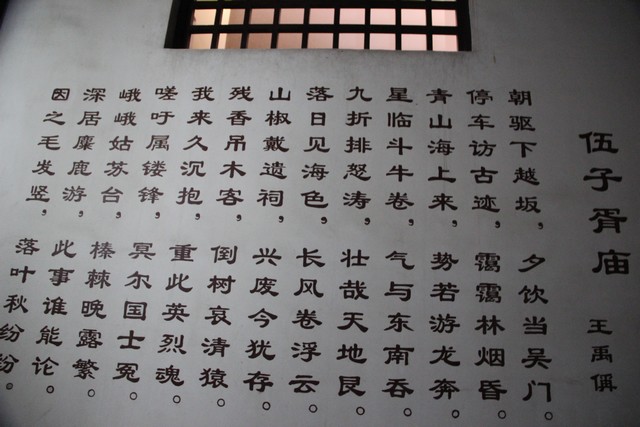 伍子胥庙
王禹偁
朝驱下越坂，
夕饮当吴门。
停车访古迹，
霭霭林烟昏。
青山海上来，
势若游龙奔。
星临斗牛卷，
气与东南吞。
九折排怒涛，
壮哉天地艮。
落日见海色，
长风卷浮云。
山椒戴遗祠，
兴废今犹存。
残香吊木客，
倒树哀清猿。
我来久沉抱，
重此英烈魂。
嗟吁属镂锋，
冥尔国士冤。
峨峨姑苏台，
榛棘晚露繁。
深居麋鹿游，
此事谁能论。
因之毛发竖，
落叶秋纷纷。